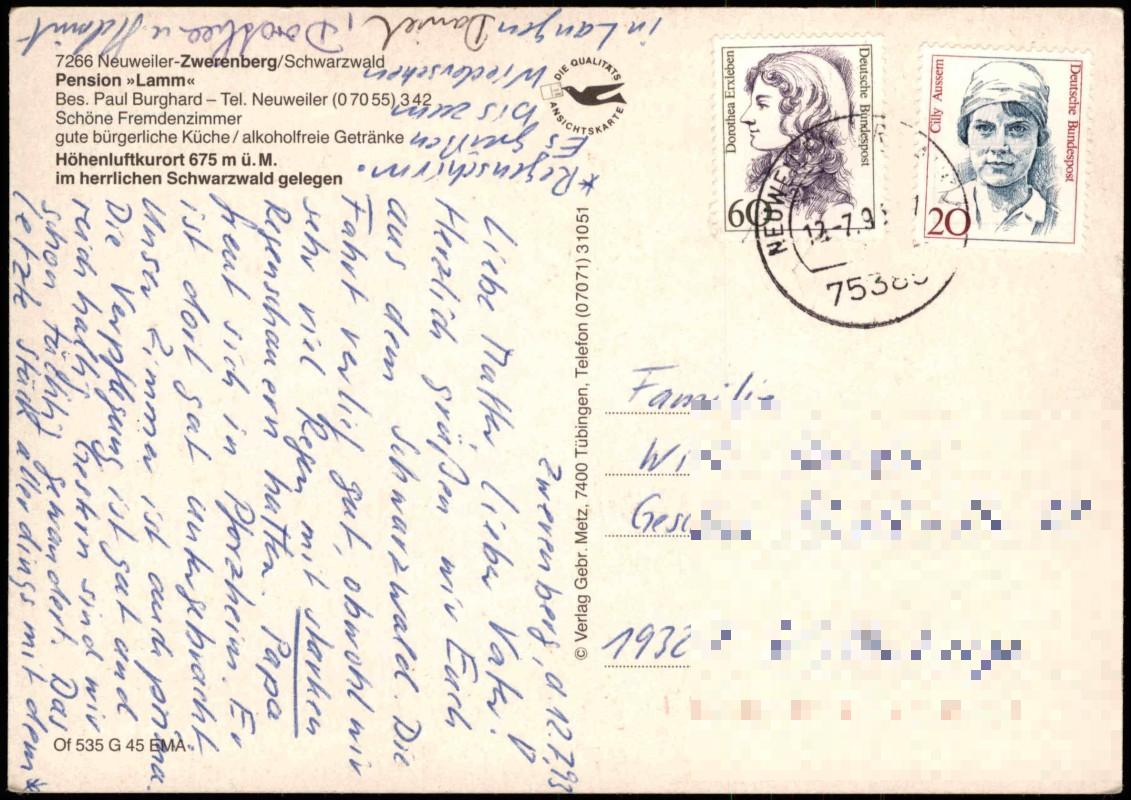 7266 Neuweiler-Zwerenberg/Schwarzwald
Pension »Lamm«
Bes. Paul Burghard – Tel. Neuweiler (0 70 55) 3 42
Schöne Fremdenzimmer
gute bürgerliche Küche / alkoholfreie Getränke
Höhenluftkurort 675 m ü. M.
im herrlichen Schwarzwald gelegen
DIE QUALITÄTS
ANSICHTSKARTE
Dorothea Erxleben
Deutsche Bundespost
60
Cilly Aussem
Deutsche Bundespost
20
NEUWE
12.-7.9
7538
© Verlag Gebr. Metz, 7400 Tübingen, Telefon (07071) 31051
Zwerenberg, d. 12.7.93
Liebe Mutter, lieber Vater!
Herzlich grüßen wir Euch
aus dem Schwarzwald. Die
Fahrt verlief gut, obwohl wir
sehr viel Regen mit starken
Regenschauern hatten. Papa
freut sich in Pforzheim. Er
ist dort gut untergebracht.
Unser Zimmer ist auch prima.
Die Verpflegung ist gut und
reichhaltig. Gestern sind wir
schon tüchtig gewandert. Das
letzte Stück allerdings mit dem *
* Regenschirm.
Es grüßen
bis zum
Wiedersehen
in Langen Daniel, Dorothea u. Helmut
Familie
Wi
Gesc
1932
Of 535 G 45 EMA